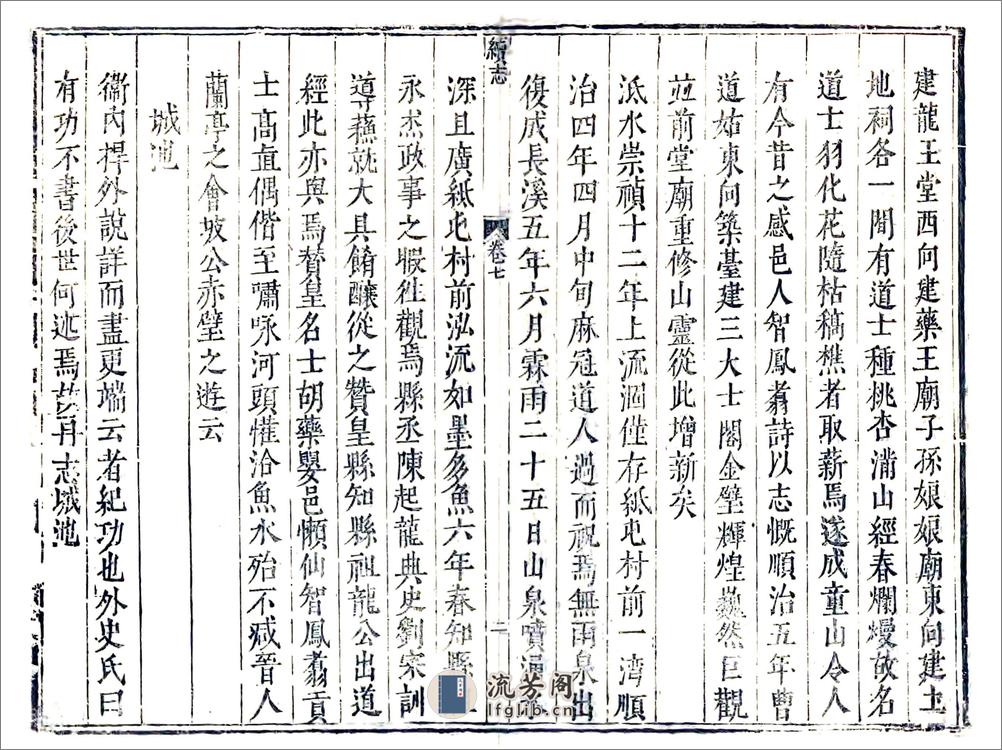 建龍王堂西向建藥王廟子孫娘娘廟東向建土
地祠各一間有道士種桃杏滿山經春爛熳故名
道士羽化花隨枯稿樵者取薪焉遂成童山令人
有今昔之感邑人智鳳翥詩以志慨順治五年曹
道姑東向築臺建三大士閣金壁輝煌巍然巨觀
並前堂廟重修山靈從此增新矣
泜水崇禎十二年上流涸僅存紙屯村前一湾順
治四年四月中旬麻冠道人過而祝焉無雨泉出
復成長溪五年六月霖雨二十五日山泉噴湧
深且廣紙屯村前泓流如墨多魚六年春知縣
永杰政事之暇徃觀焉縣丞陳起龍典史劉宗訓
導蘓就大具餚釀從之贊皇縣知縣祖龍公出道
經此亦與焉贊皇名士胡藥嬰邑懶仙智鳳翥貢
士高𥄂偶偕至嘯咏河頭懽洽魚水殆不减晉人
蘭亭之會坡公赤壁之遊云
城池
衞內捍外說詳而盡更端云者紀功也外史氏曰
有功不書後世何述焉故再志城池
續志
卷七
二
流芳阁
lfglib.cn